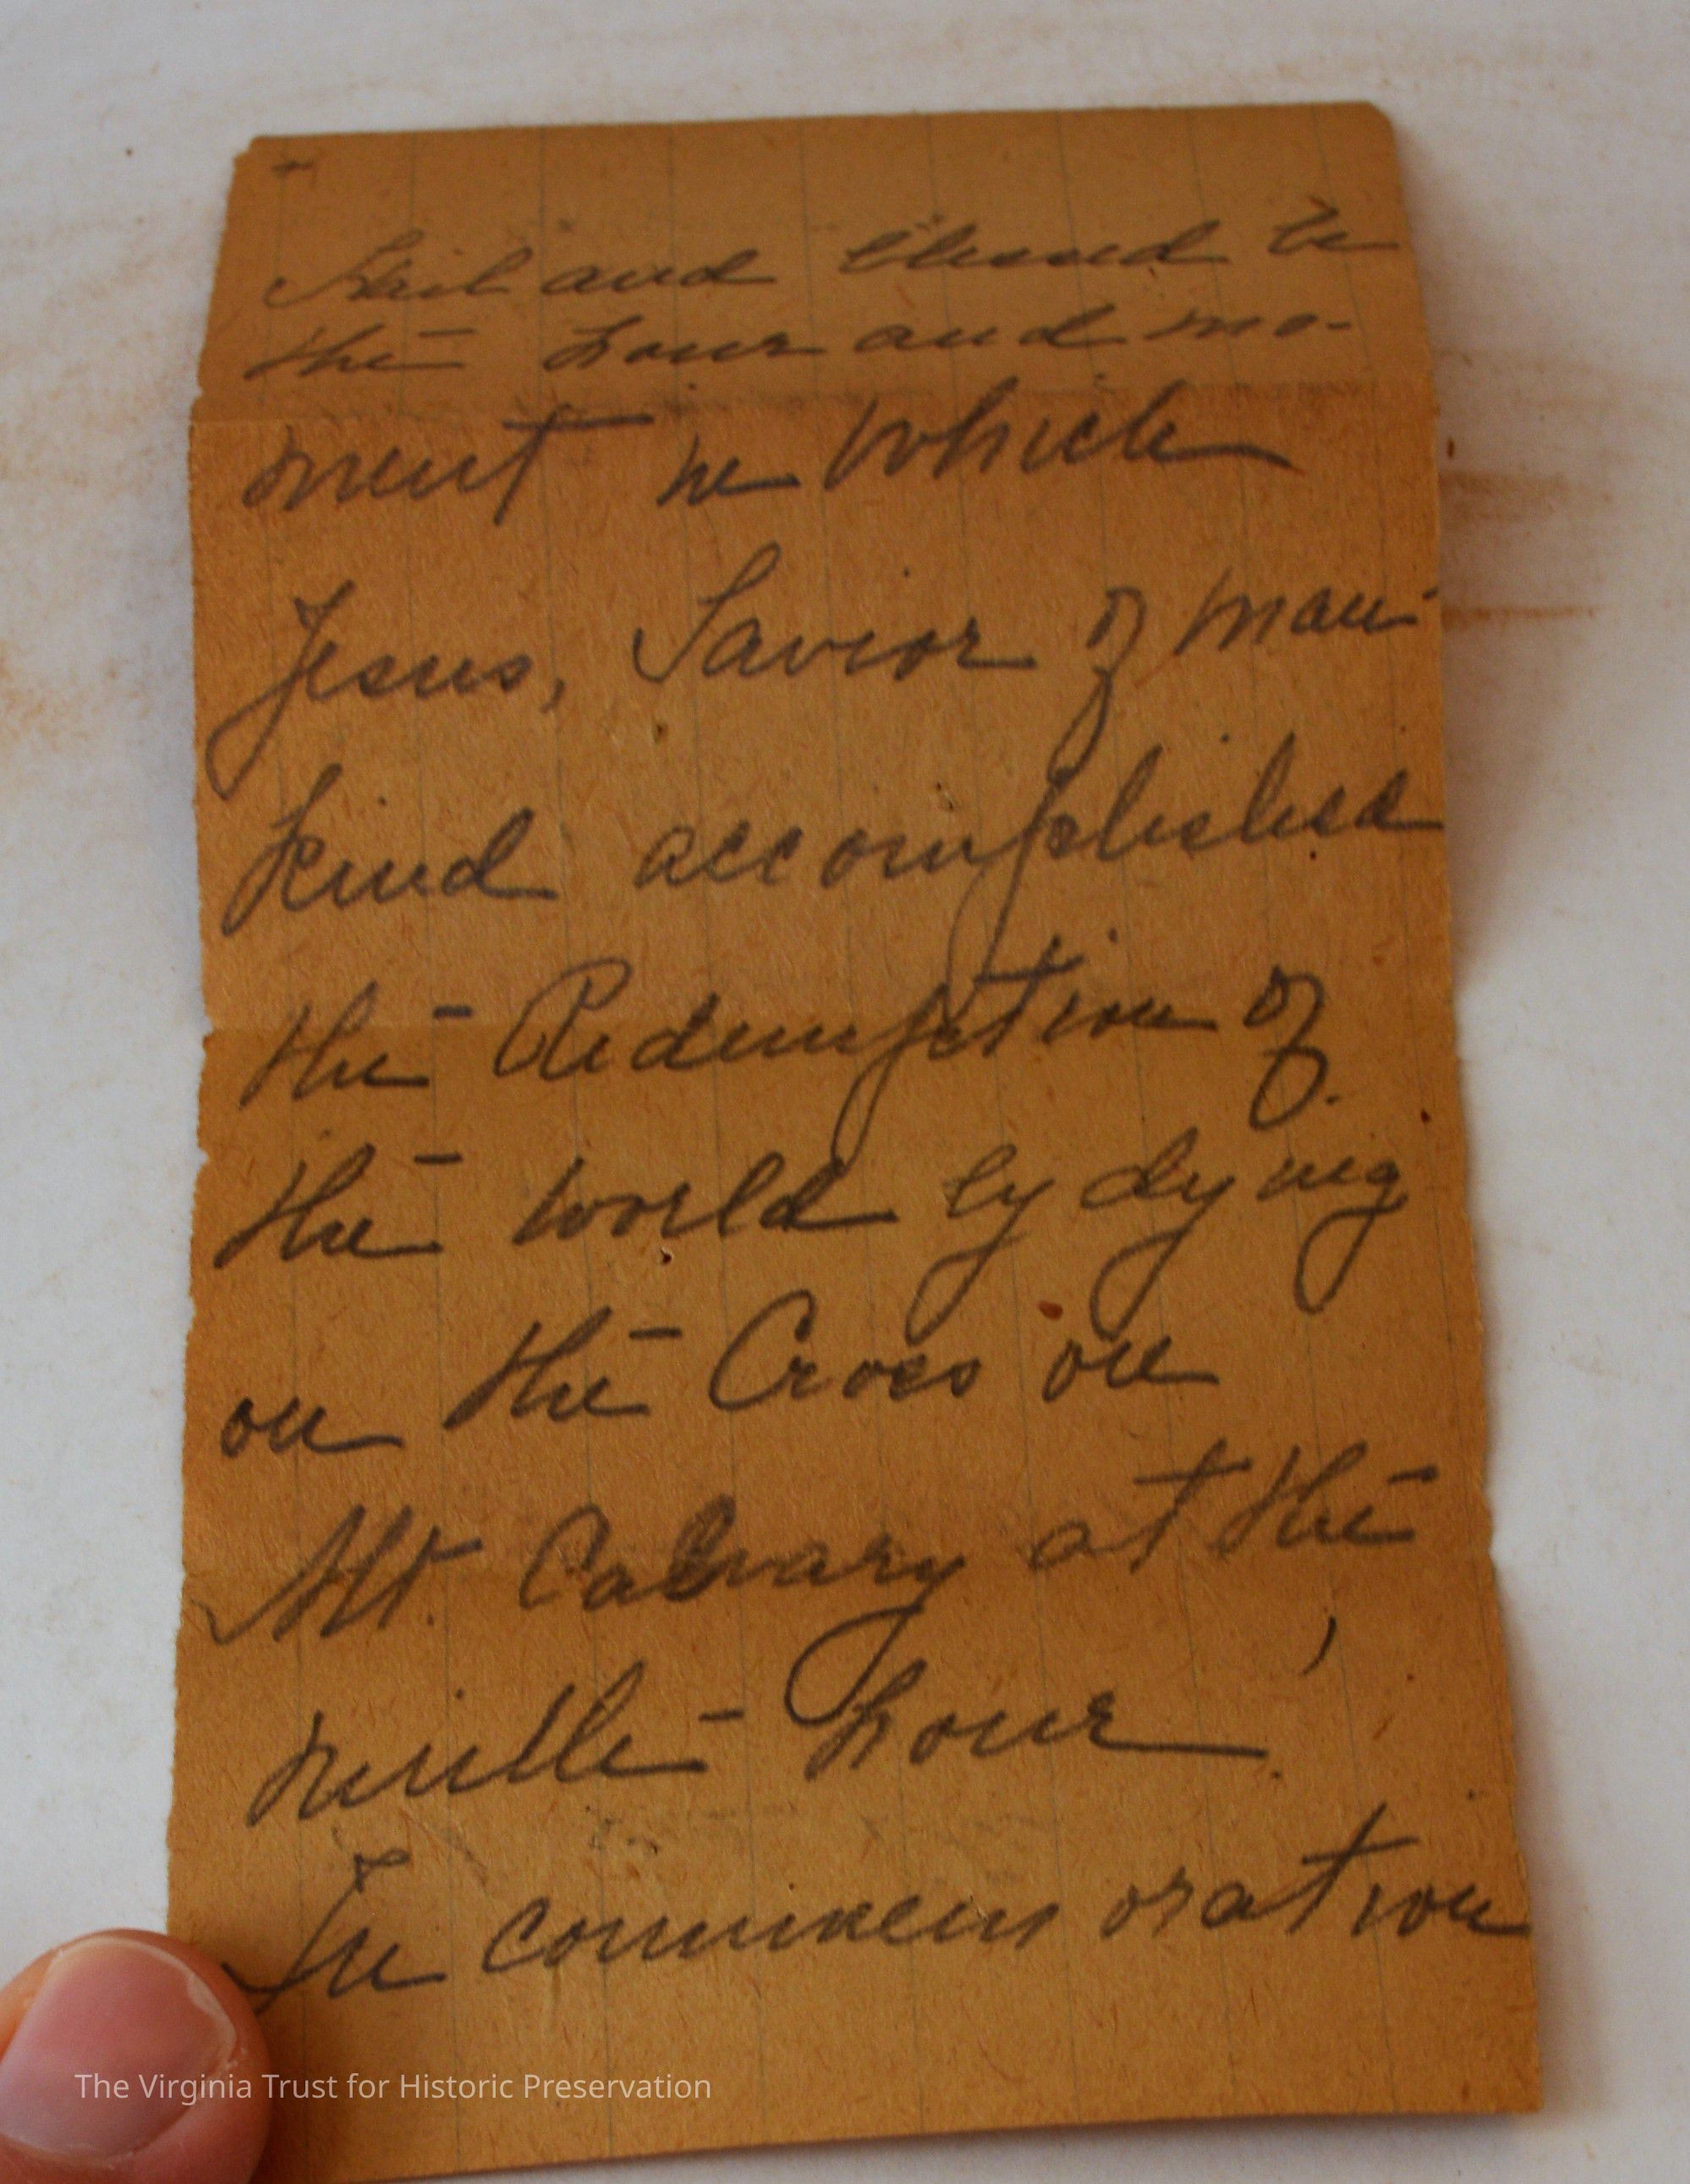 +
Hail and blessed be
the hour and mo-
ment in which
Jesus, Savior of man-
kind accomplished
the Redemption of
the world by dying
on the Cross on
Mt. Calvary at the
ninth hour.
In commemoration
The Virginia Trust for Historic Preservation